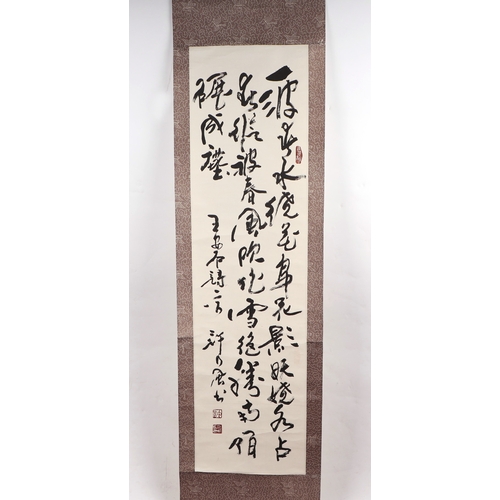 一陂春水繞花身花影妖嬈各占
春縱被春風吹作雪絕勝南陌
碾成塵
王安石詩一首 許書